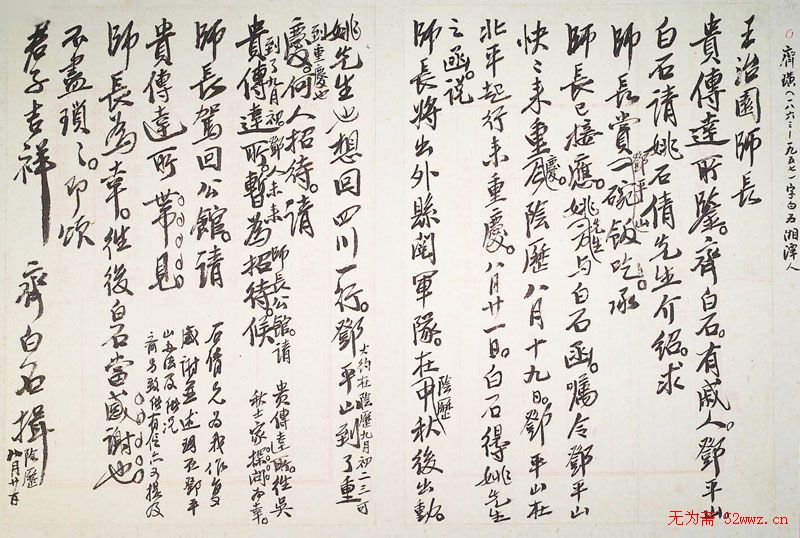 齊璜（一八六三—一九五七）字白石湘潭人
王治園師長
貴傳達所鑒。齊白石。有戚人。鄧平山。
白石請姚石倩先生介紹。求
師長賞鄧平山一碗飯吃。承
師長已接應。姚先生方与白石函。囑令鄧平山
快快來重慶。陰歷八月十九日。鄧平山在
北平起行来重慶。八月廿一日。白石得姚先生
之函。说
師長將出外縣閱軍隊。在陰歷中秋後出動。
姚先生也想回四川一行。鄧平山到了重
大约在陰歷九月初一二三寸
慶。何人招待。請
到重慶也
貴傳達所。暫為招待。候
到了九月初鄧人未来
師長公館。請
貴傳達所。往吳
秋士家探问為幸。
師長駕回公館。請
貴傳達所帶見
師長為幸。往後白石當感謝也。
石倩兄为我作复
感謝并述明不鄧平
山
不盡瑣瑣。即頌
君子吉祥
齊白石揖
陰歷
八月廿一日
无为斋 52wwz.cn